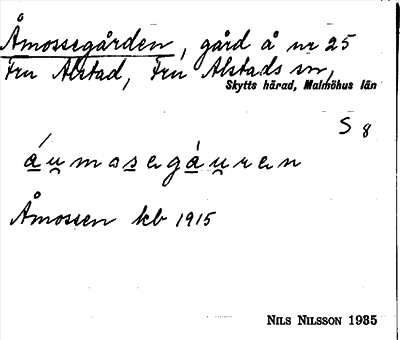 Åmossegården, gård å nr 25
Fru Alstad, Fru Alstads sn,
Skytts härad, Malmöhus län
S 8
áu̯mosegáu̯ren
Åmossen kb 1915
NILS NILSSON 1935